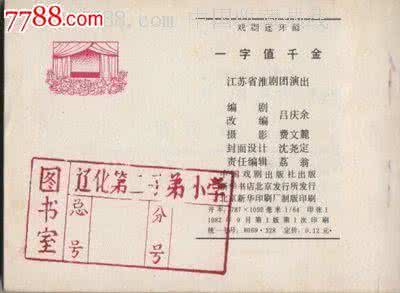 7788.com
戏剧连环画
一字值千金
江苏省淮剧团演出
编剧
改编 吕庆余
摄影 费文麓
封面设计 沈尧定
责任编辑 荔翁
中国戏剧出版社出版
新华书店北京发行所发行
北京新华印刷厂制版印刷
开本:787×1092毫米1/64 印张1
1982年9月第1版第1次印刷
统一书号:8069·328 定价:0.12元
图书室
辽化第二子弟小学
总号
分号